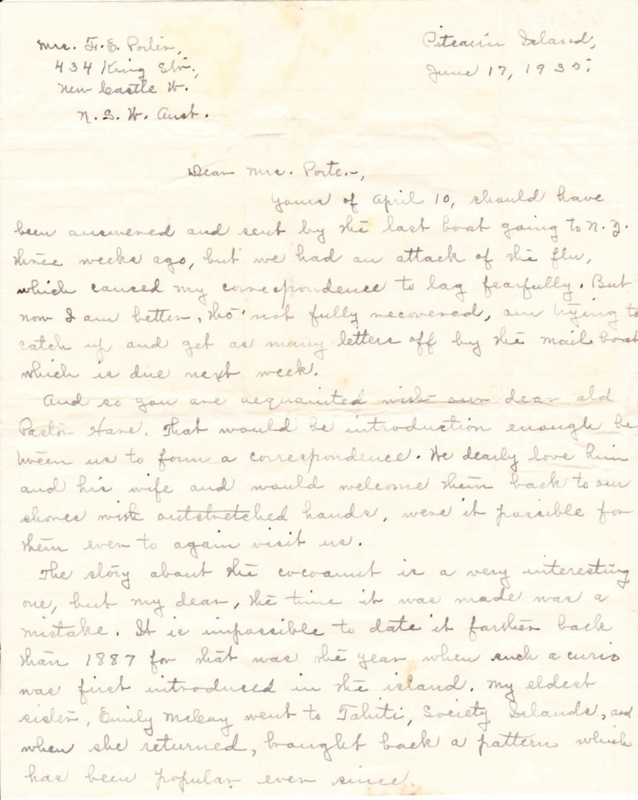 Mrs. F. E. Porter,
434 King Str.,
New Castle W.
N. S. W. Aust.
Pitcairn Island,
June 17, 1935.
Dear Mrs. Porter,
Yours of April 10, should have
been answered and sent by the last boat going to N. Z.
three weeks ago, but we had an attack of the flu,
which caused my correspondence to lag fearfully. But
now I am better, tho' not fully recovered, am trying to
catch up and get as many letters off by the mail boat
which is due next week.
And so you are acquainted with our dear old
Pastor Hare. That would be introduction enough be
tween us to form a correspondence. We dearly love him
and his wife and would welcome them back to our
shores with outstretched hands, were it possible for
them ever to again visit us.
The story about the cocoanut is a very interesting
one, but my dear, the time it was made was a
mistake. It is impossible to date it farther back
than 1887 for that was the year when such a curio
was first introduced in the island. My eldest
sister, Emily McCoy went to Tahiti, Society Islands, and
when she returned, brought back a pattern which
has been popular ever since.